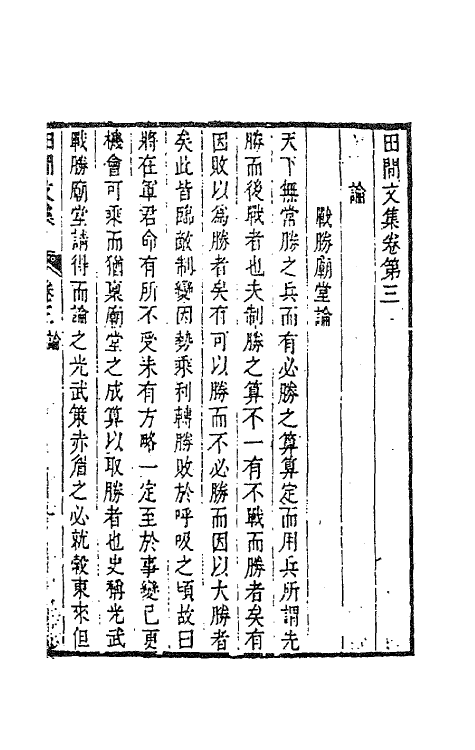 田間文集卷第三
論
戰勝廟堂論
天下無常勝之兵而有必勝之算算定而用兵所謂先
勝而後戰者也夫制勝之算不一有不戰而勝者矣有
因敗以為勝者矣有可以勝而不必勝而因以大勝者
矣此皆臨敵制變因勢乘利轉勝敗於呼吸之頃故曰
將在軍君命有所不受未有方略一定至於事變已更
機會可乘而猶稟廟堂之成算以取勝者也史稱光武
戰勝廟堂請得而論之光武策赤眉之必就穀東來但
田間文集 卷三 論